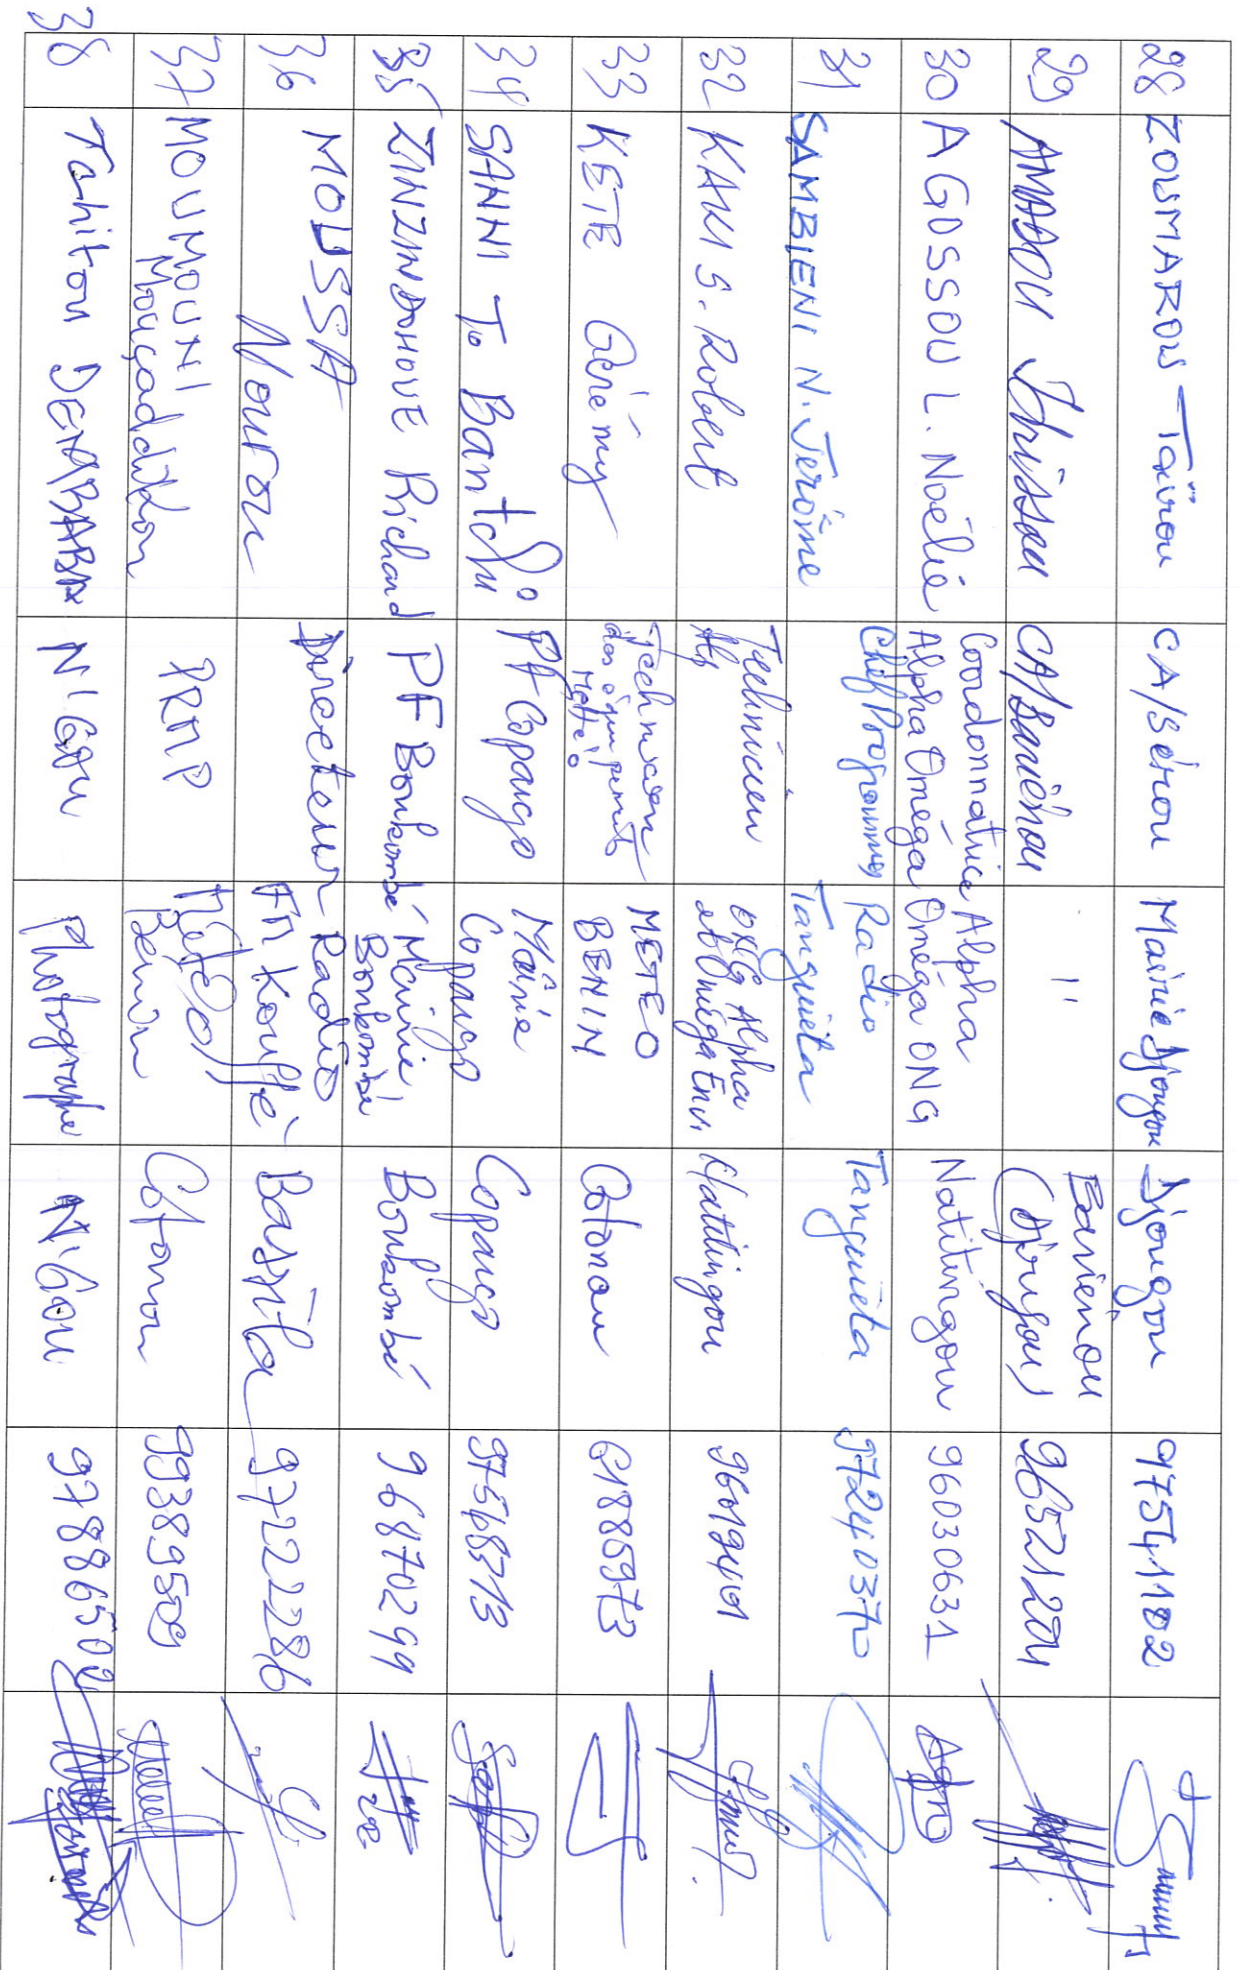 28 ZOUMAROU Taïrou CA/Sérou Mairie Djougou Djougou 97541102
29 AMADOU Idrissou CA/Bariénou " Bariénou
(Djougou) 96521204
30 AGOSSOU L. Noélie Coordonnatrice
Alpha Oméga Alpha
Oméga ONG Natitingou 96030631
31 SAMBIENI N. Jérôme Chef Programmes Radio
Tanguiéta Tanguiéta 97240370
32 S. Robert Technicien ONG Alpha
et Oméga Env. Natitingou
33 KETE Gérémy Technicien
des équipements
Météo METEO
BENIN Cotonou 61885973
34 SANNI To Bantchi PF Copargo Mairie
Copargo Copargo 97568713
35 ZINZINDOHOUE Richard PF Boukombé Mairie
Boukombé Boukombé 96870299
36 MOUSSA
Nourou Directeur Radio
FM Kouffé Bassila 97222286
37 MOUMOUNI
Mouçadditou PRMP Météo
Benin Cotonou 99389509
38 Tahitou DEMABABA N'Gou Photographe N'Gou 97886502